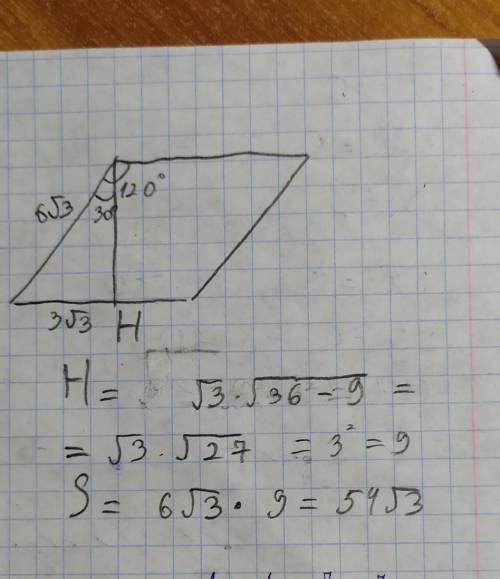 6√3
120°
30
3√3 H
H = √3 · √36 - 9 =
= √3 · √27 = 3² = 9
S = 6√3 · 9 = 54√3